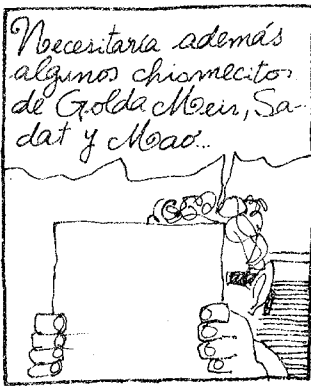 Necesitaría además
algunos chismecitos
de Golda Meir, Sa-
dat y Mao...